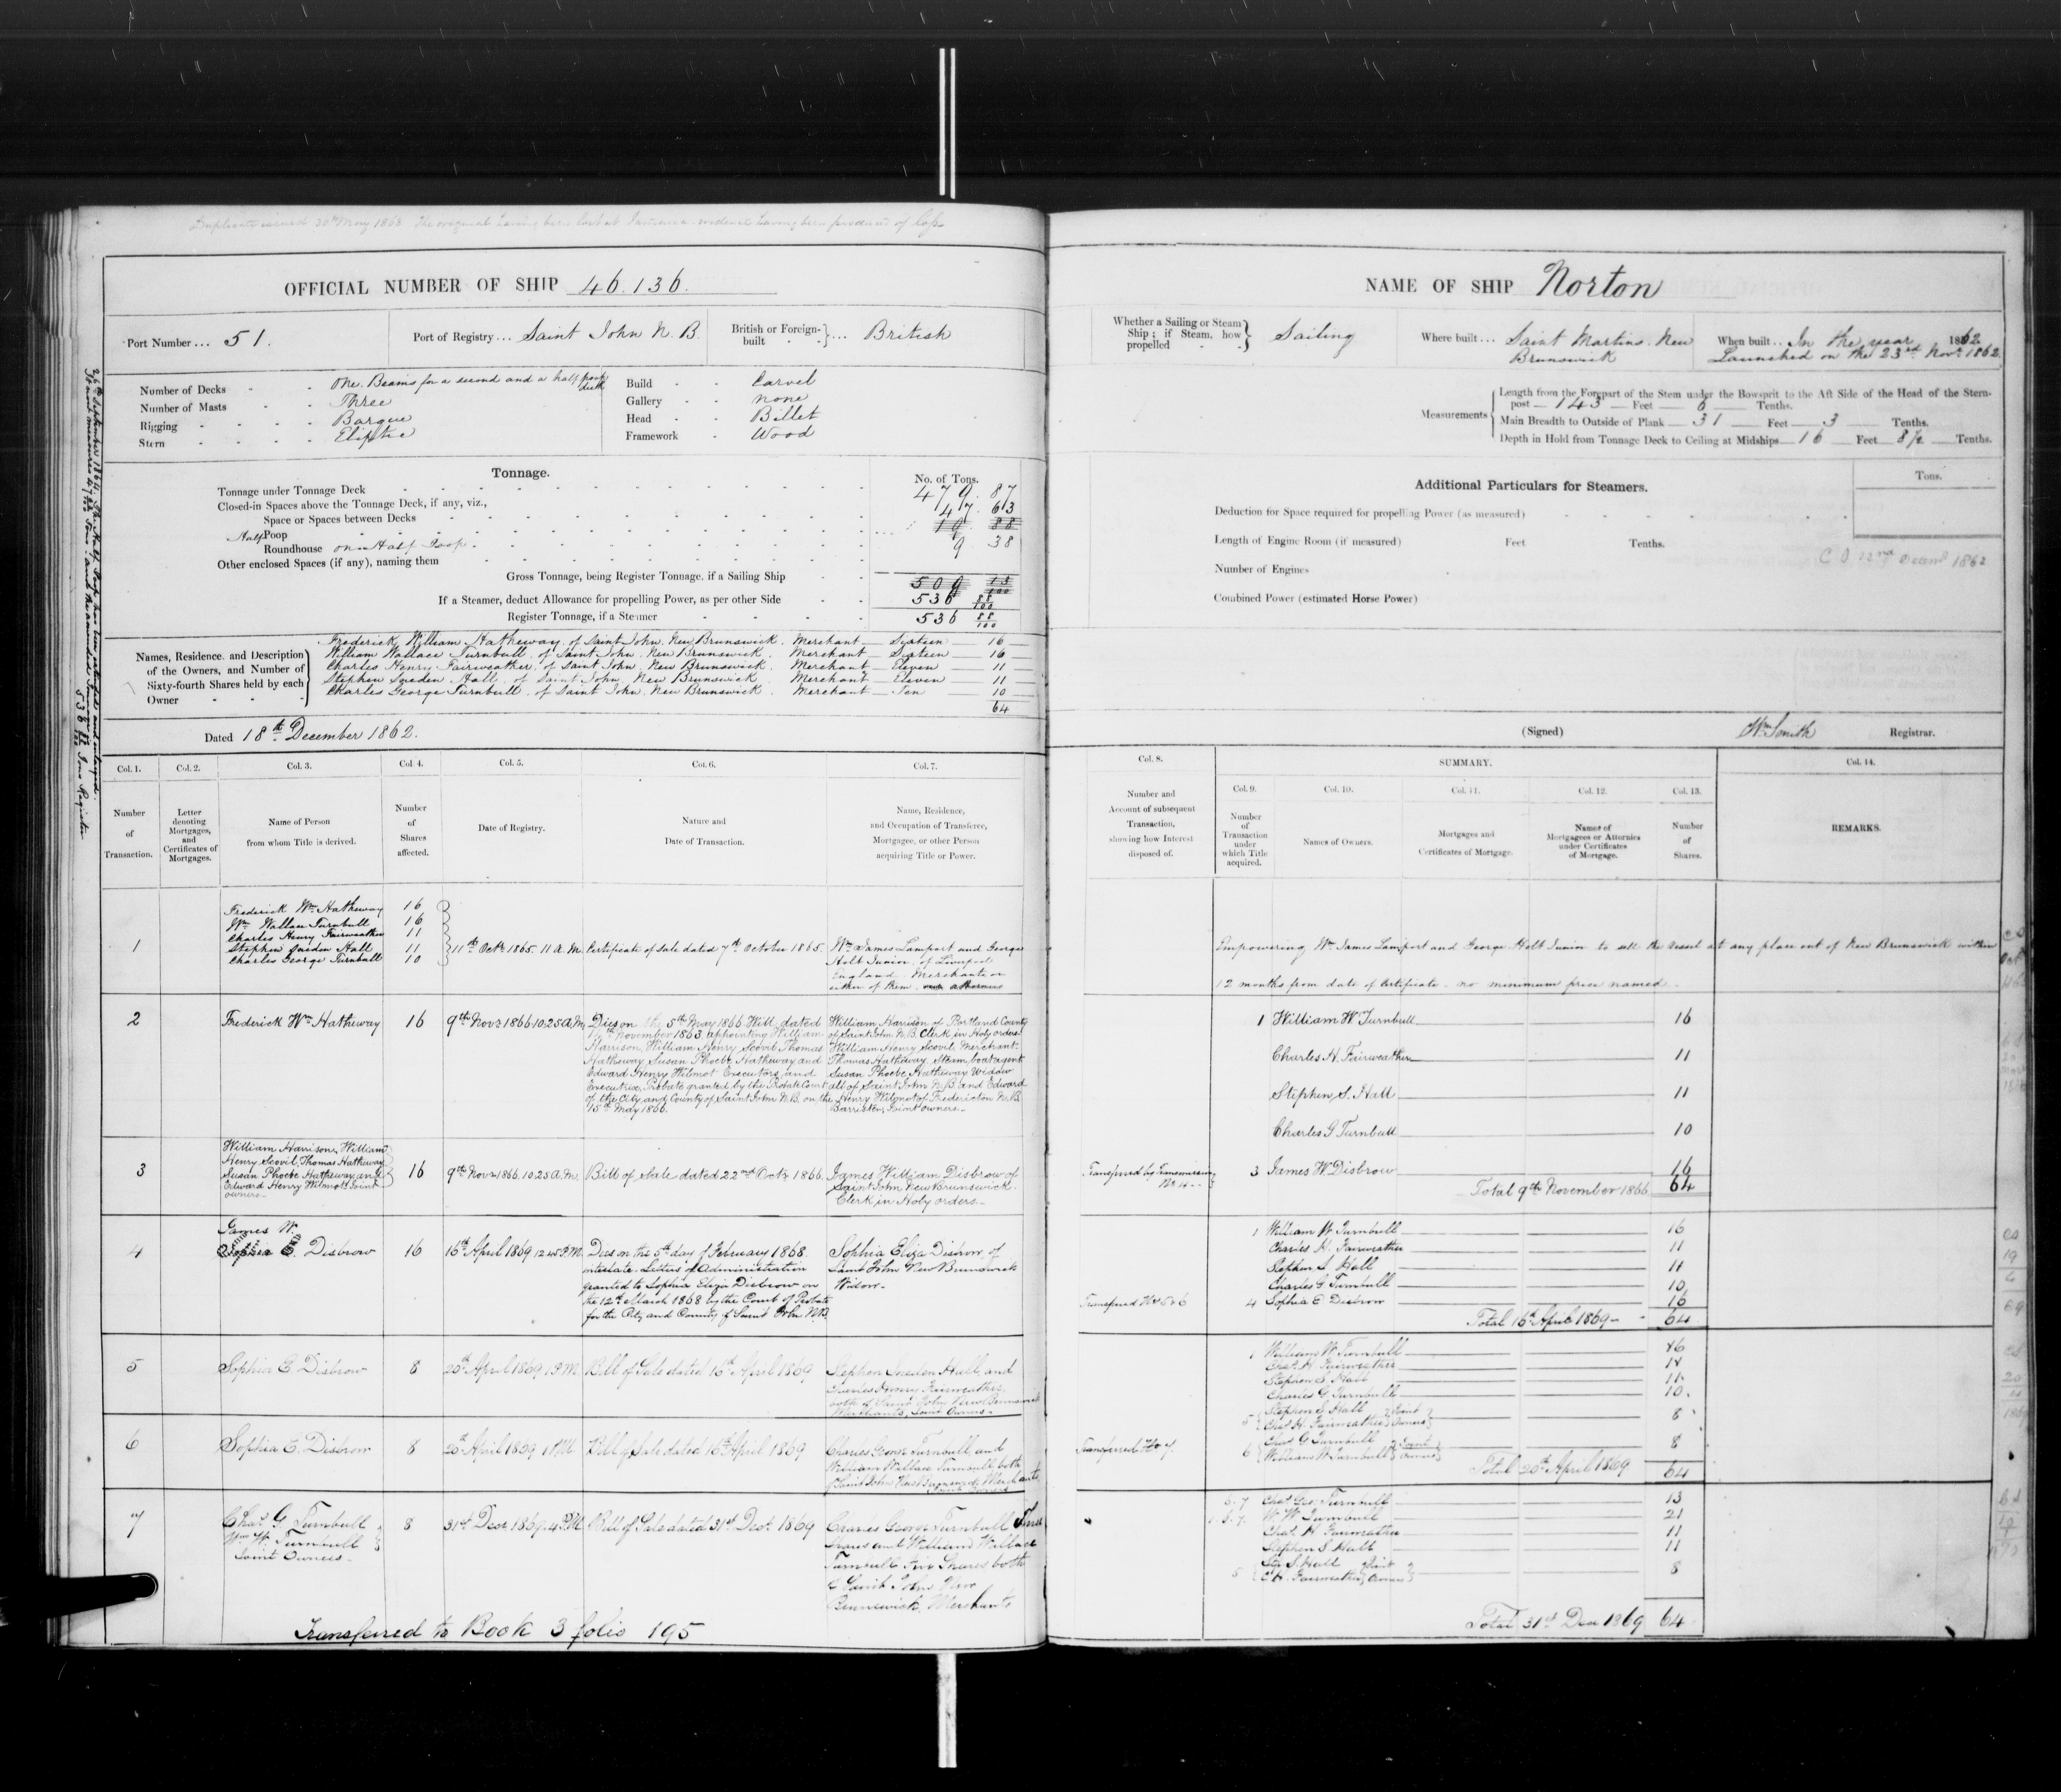 Duplicate issued 30th May 1863 The original having been lost at evidence having been produced of loss
OFFICIAL NUMBER OF SHIP 46.136.
Port Number ... 51.
Port of Registry ... Saint John N. B.
British or Foreign-built } ... British
Number of Decks - - One. Beams for a second and a half poop deck
Number of Masts - - Three
Rigging - - Barque
Stern - - Eliptic
Build - - Carvel
Gallery - none
Head - - Billet
Framework - Wood
Tonnage.
No. of Tons.
Tonnage under Tonnage Deck 479. 87
Closed-in Spaces above the Tonnage Deck, if any, viz.,
Space or Spaces between Decks 47. 63
Half Poop 19. 88
Roundhouse on Half Poop 9 38
Other enclosed Spaces (if any), naming them
Gross Tonnage, being Register Tonnage, if a Sailing Ship 509 13/100
If a Steamer, deduct Allowance for propelling Power, as per other Side 536 88/100
Register Tonnage, if a Steamer 536 88/100
Names, Residence, and Description of the Owners, and Number of Sixty-fourth Shares held by each Owner
Frederick William Hatheway, of Saint John, New Brunswick. Merchant — Sixteen — 16
William Wallace Turnbull, of Saint John, New Brunswick, Merchant — Sixteen — 16
Charles Henry Fairweather, of Saint John, New Brunswick. Merchant — Eleven — 11
Stephen Sneden Hall, of Saint John, New Brunswick Merchant — Eleven — 11
Charles George Turnbull, of Saint John, New Brunswick. Merchant — Ten 10
64
Dated 18th December 1862.
Col. 1. Col. 2. Col. 3. Col. 4. Col. 5. Col. 6. Col. 7.
Number of Transaction.
Letter denoting Mortgages, and Certificates of Mortgages.
Name of Person from whom Title is derived.
Number of Shares affected.
Date of Registry.
Nature and Date of Transaction.
Name, Residence, and Occupation of Transferee, Mortgagee, or other Person acquiring Title or Power.
1
Frederick Wm Hatheway 16
Wm Wallace Turnbull 16
Charles Henry Fairweather 11
Stephen Sneden Hall 11
Charles George Turnbull 10
11th Octr 1865. 11 A.M.
Certificate of Sale dated 7th October 1865.
Wm James Lamport and George
Holt Junior, of Liverpool
England Merchants or
either of them
2
Frederick Wm Hatheway
16
9th Novr 1866 10.25 A.M.
Dies on the 5th May 1866. Will dated
November 1863, appointing William
Harrison, William Henry Scovil, Thomas
Hatheway, Susan Phoebe Hatheway and
Edward Henry Wilmot Executors and
Executrix. Probate granted by the Probate Court
of the City and County of Saint John N.B. on the
15th May 1866.
William Harrison of Portland County
of Saint John N.B. Clerk in Holy orders
William Henry Scovil, Merchant.
Thomas Hatheway, Steam boat agent
Susan Phoebe Hatheway Widow
all of Saint John N.B. and Edward
Henry Wilmot of Fredericton N.B.
Barrister, Joint owners.
3
William Harrison, William
Henry Scovil, Thomas Hatheway
Susan Phoebe Hatheway and
Edward Henry Wilmot Joint
owners.
16
9th Novr 1866. 10.25 A.M.
Bill of Sale dated 22nd Octr 1866.
James William Disbrow of
Saint John New Brunswick.
Clerk in Holy orders.
4
James W.
Sophia E. Disbrow
16
16th April 1869 12.45 P.M.
Dies on the 5th day of February 1868
intestate. Letters of Administration
granted to Sophia Eliza Disbrow on
the 12th March 1868 by the Court of Probate
for the City and County of Saint John N.B.
Sophia Eliza Disbrow, of
Saint John New Brunswick
Widow
5
Sophia E Disbrow
8
20th April 1869 1 P.M.
Bill of Sale dated 16th April 1869
Stephen Sneden Hall, and
Charles Henry Fairweather,
both of Saint John New Brunswick
Merchants, Joint Owners.
6
Sophia E. Disbrow
8
20th April 1869 1 P.M.
Bill of Sale dated 16th April 1869
Charles George Turnbull and
William Wallace Turnbull both
of Saint John New Brunswick Merchants
Joint Owners
7
Chas G. Turnbull
Wm W. Turnbull
Joint Owners
8
31st Decr 1869. 4 P.M.
Bill of Sale dated 31st Decr 1869
Charles George Turnbull Three
Shares and William Wallace
Turnbull Five Shares both
of Saint John New
Brunswick, Merchants
Transferred to Book 3 folio 195
NAME OF SHIP Norton
Whether a Sailing or Steam Ship; if Steam, how propelled } Sailing
Where built ... Saint Martins. New Brunswick
When built ... In the year 1862
Launched on the 23rd Novr 1862.
Measurements
Length from the Forepart of the Stem under the Bowsprit to the Aft Side of the Head of the Stern-
post — 143 — Feet — 6 — Tenths.
Main Breadth to Outside of Plank — 31 — Feet — 3 — Tenths.
Depth in Hold from Tonnage Deck to Ceiling at Midships — 16 — Feet 8½ — Tenths.
Additional Particulars for Steamers.
Tons.
Deduction for Space required for propelling Power (as measured)
Length of Engine Room (if measured) Feet Tenths.
Number of Engines
Combined Power (estimated Horse Power)
(Signed) Wm Smith Registrar.
Col. 8. SUMMARY. Col. 14.
Col. 9. Col. 10. Col. 11. Col. 12. Col. 13.
Number and Account of subsequent Transaction, showing how Interest disposed of.
Number of Transaction under which Title acquired.
Names of Owners.
Mortgages and Certificates of Mortgage.
Names of Mortgagees or Attornies under Certificates of Mortgage.
Number of Shares.
REMARKS.
Empowering Wm James Lamport and George Holt Junior to sell the vessel at any place out of New Brunswick within
12 months from date of Certificate. no minimum price named.
1 William W Turnbull 16
Charles H. Fairweather 11
Stephen S. Hall 11
Charles G Turnbull 10
Transferred by Transmission No 4
3 James W Disbrow 16
Total 9th November 1866 64
1 William W Turnbull 16
Charles H. Fairweather 11
Stephen S Hall 11
Charles G Turnbull 10
Transferred No 5 & 6
4 Sophia E Disbrow 16
Total 16th April 1869 64
1 William W Turnbull 16
Chas H Fairweather 11
Stephen S Hall 11
Charles G Turnbull 10.
5 { Stephen S Hall
Chas H. Fairweather } Joint Owners 8
Transferred No 7.
6 { Chas G Turnbull
William W Turnbull } Joint Owners 8
Total 20th April 1869 64
Chas Geo. Turnbull 13
W. W Turnbull 21
Chas H Fairweather 11
Stephen S Hall 11
5 { Ste S. Hall
C H. Fairweather } Joint Owners 8
Total 31st Decr 1869 64